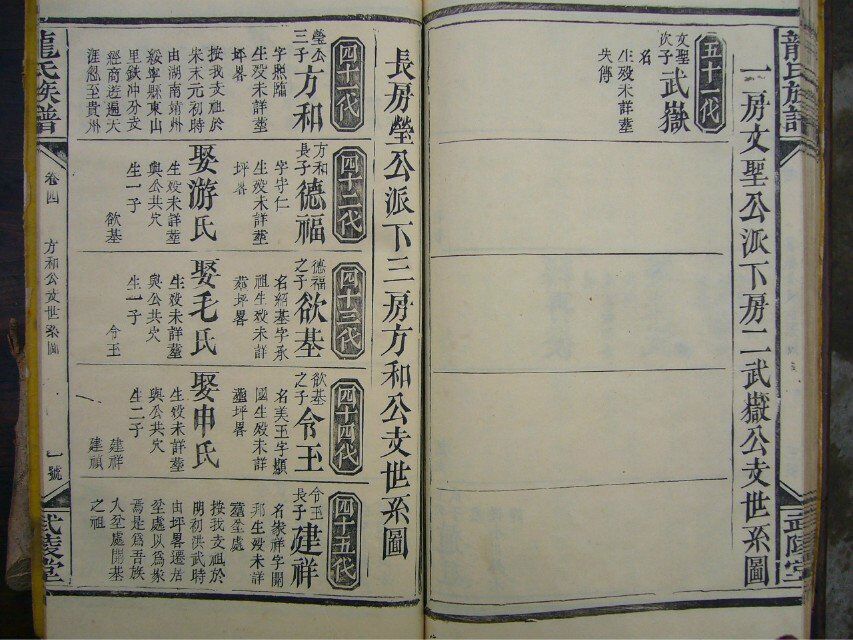 龍氏族譜
武陵堂
一房文聖公派下房二武嶽公支世系圖
五十一代
文聖
次子
武嶽
名
生歿未詳塟
失傳
長房瑩公派下三房方和公支世系圖
四十一代
瑩公
三子
方和
字照臨
生歿未詳塟
坪畧
按我支祖於
宋末元初時
由湖南靖州
綏寧縣東山
里鉄冲分支
經商遊遍大
涯忽至貴州
四十二代
方和
長子
德福
字守仁
生歿未詳塟
坪畧
娶游氏
生歿未詳塟
與公共穴
生一子
欲基
四十三代
德福
之子
欲基
名綱基字承
祖生歿未詳
塟坪畧
娶毛氏
生歿未詳塟
與公共穴
生一子
令王
四十四代
欲基
之子
令王
名美王字顯
國生歿未詳
塟坪畧
娶申氏
生歿未詳塟
與公共穴
生二子
建祥
建禎
四十五代
令王
長子
建祥
名發祥字開
邦生歿未詳
塟坌處
按我支祖於
明初洪武時
由坪畧遷居
坌處以爲家
焉是爲吾族
入坌處開基
之祖
龍氏族譜
卷四
方和公支世系圖
一號
武陵堂